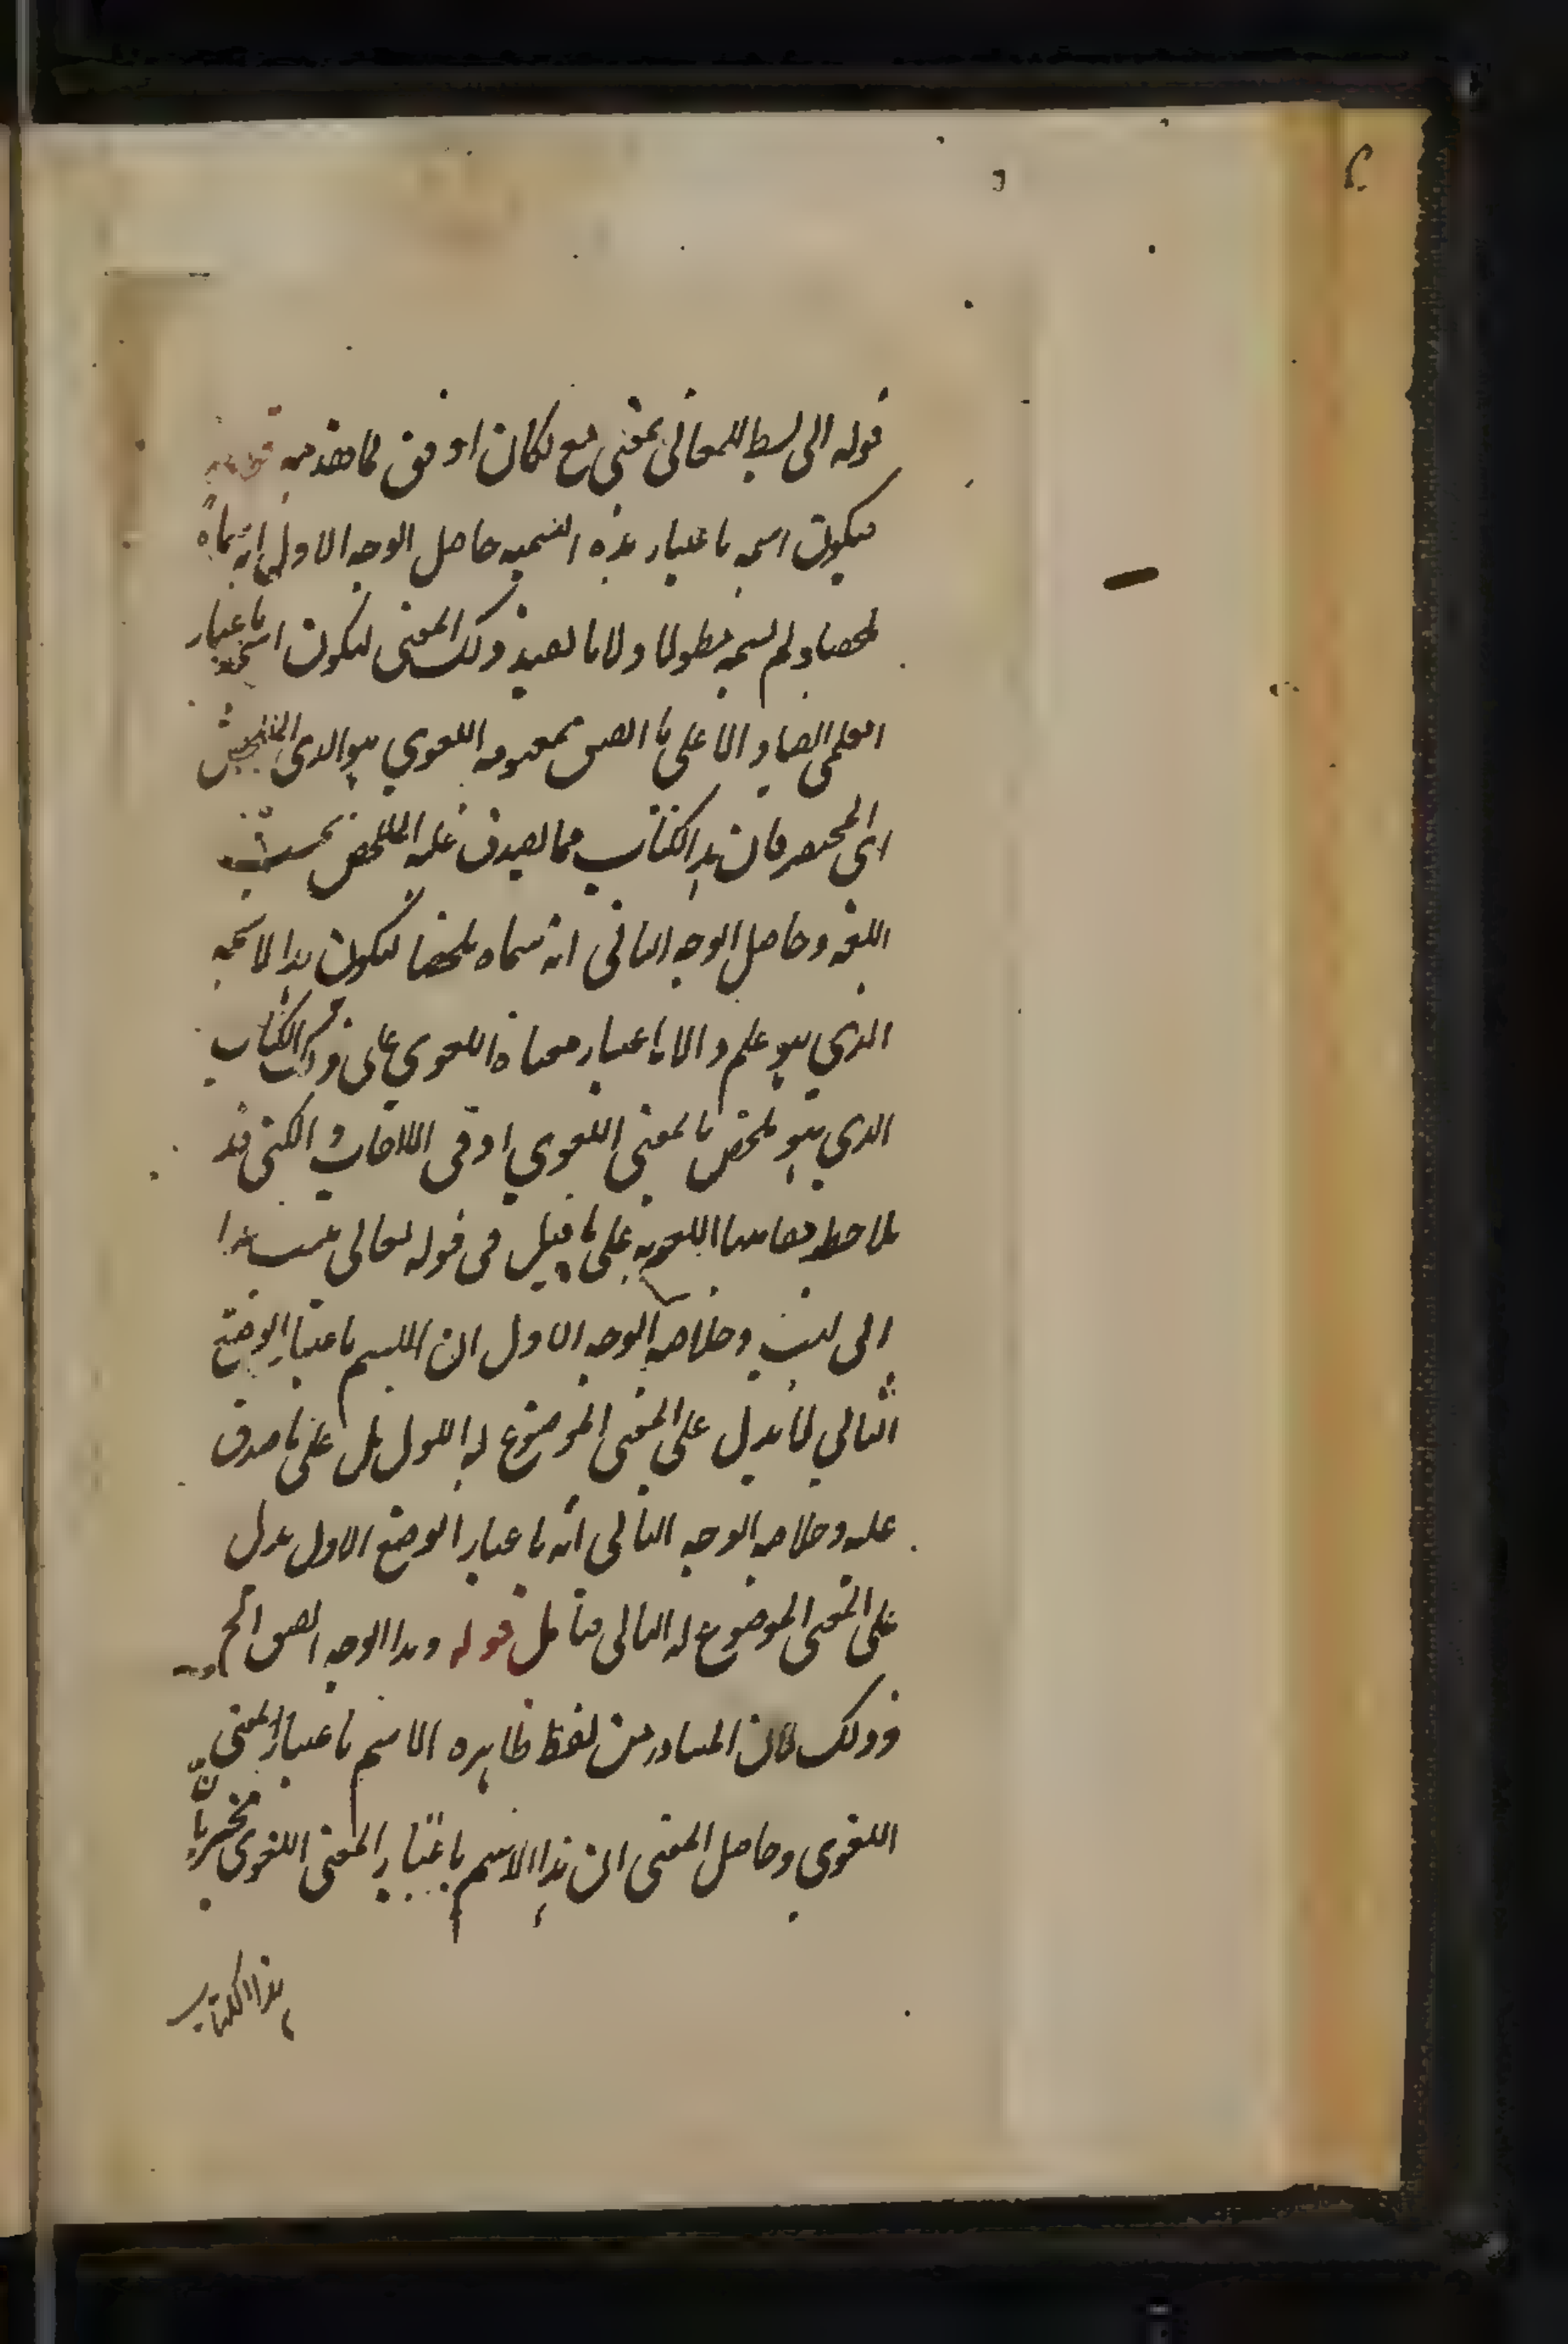 قوله الى بسط المعانى بمعنى مع لكان اوفق لما هذبه قوله
ليكون اسمه باعتبار هذه التسميه حاصل الوجه الاول انه سماه
ملخصا ولم يسمه مطولا ولا ما يفيد ذلك المعنى ليكون اسمه باعتبار
العلمى ايضا دالا على ما الصق بمفهومه اللغوي هو الذى
اى المختصر فان هذا الكتاب مما يصدق عليه الملخص بحسب
اللغة وحاصل الوجه الثانى انه سماه ملخصا ليكون هذا الاسم
الذي هو علم دالا باعتبار معناه اللغوي على ذلك الكتاب
الذي هو ملخص بالمعنى اللغوي اذ فى الالقاب والكنى قد
يلاحظ معانيها اللغويه على ما قيل فى قوله تعالى تبت يدا
ابى لهب وخلاصه الوجه الاول ان الاسم باعتبار الوضع
الثانى لا يدل على المعنى الموضوع له الاول بل على ما صدق
عليه وخلاصه الوجه الثانى انه باعتبار الوضع الاول يدل
على المعنى الموضوع له الثانى فتأمل قوله وهذا الوجه الصق الخ
وذلك لان المتبادر من لفظ ظاهره الاسم باعتبار المعنى
اللغوي وحاصل المعنى ان هذا الاسم باعتبار المعنى اللغوى مخبر بان
هذا الكتاب